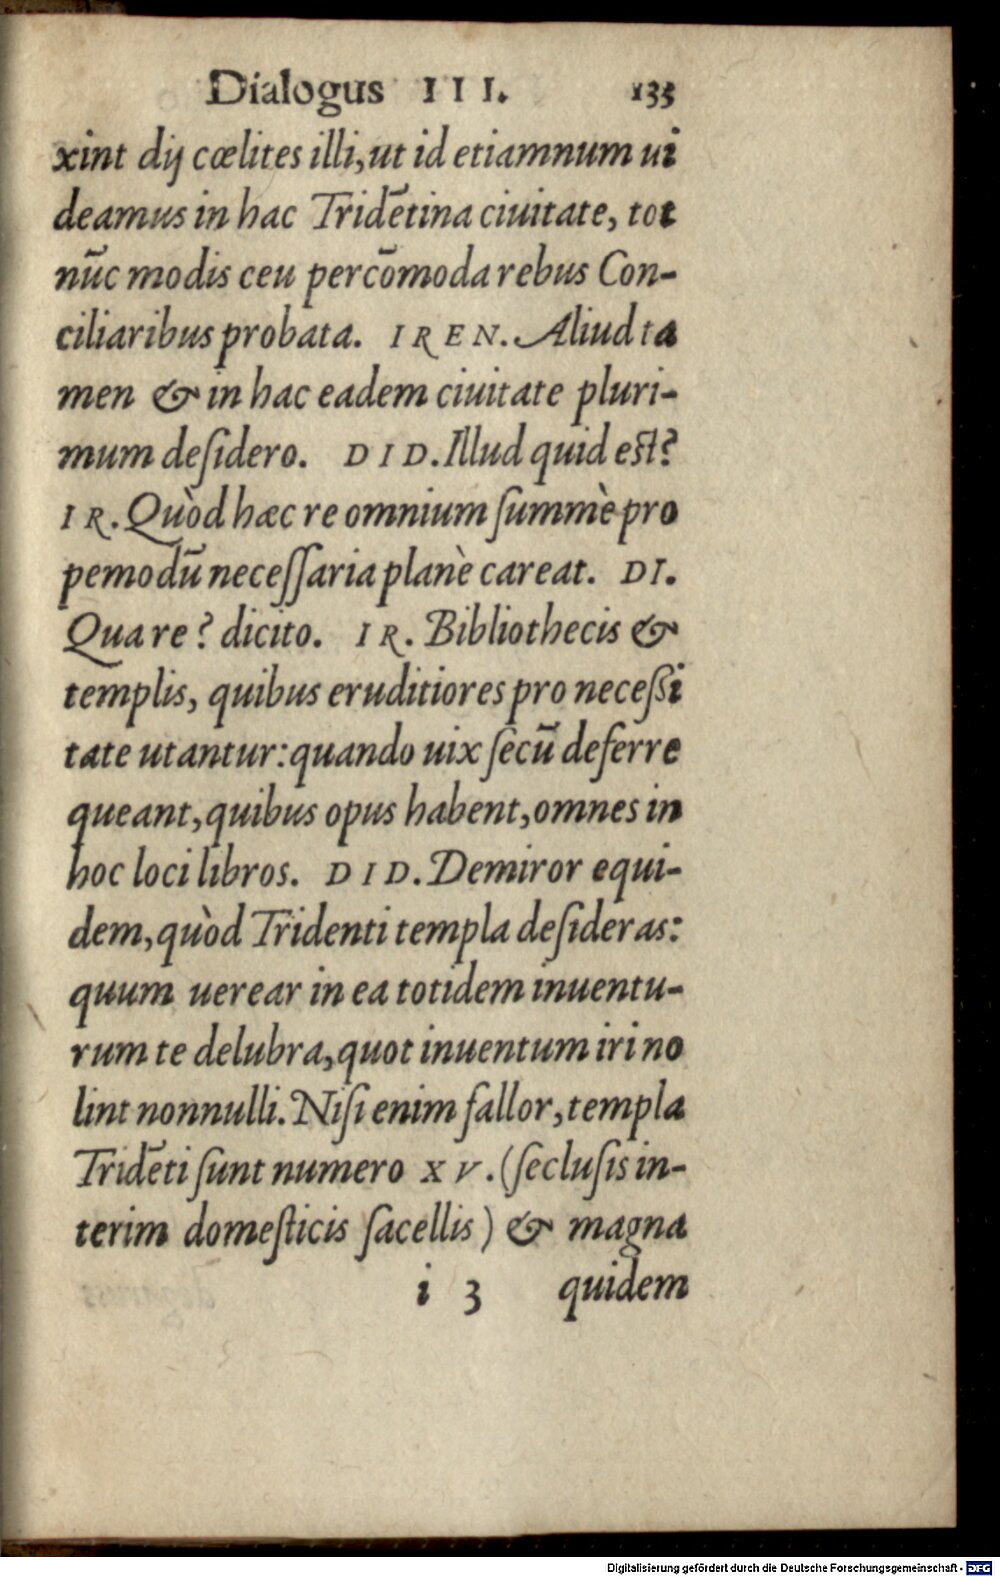 Dialogus III. 133
xint dij cœlites illi, ut id etiamnum ui
deamus in hac Tridẽtina ciuitate, tot
nũc modis ceu percõmoda rebus Con-
ciliaribus probata. IREN. Aliud ta
men & in hac eadem ciuitate pluri-
mum deſidero. DID. Illud quid eſt?
IR. Quòd hæc re omnium ſummè pro
pemodũ neceſſaria planè careat. DI.
Quare? dicito. IR. Bibliothecis &
templis, quibus eruditiores pro neceſsi
tate utantur: quando uix ſecũ deferre
queant, quibus opus habent, omnes in
hoc loci libros. DID. Demiror equi-
dem, quòd Tridenti templa deſideras:
quum uerear in ea totidem inuentu-
rum te delubra, quot inuentum iri no
lint nonnulli. Niſi enim fallor, templa
Tridẽti ſunt numero XV. (ſecluſis in-
terim domeſticis ſacellis) & magna
i 3 quidem
Digitalisierung gefördert durch die Deutsche Forschungsgemeinschaft - DFG